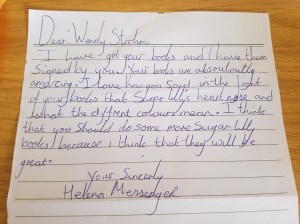 Dear Wendy Strohm,
I have got your books and I have them
signed by you. Your books are absoloutly
amazing. I love how you said in the
of your books that Sugar lilly's heart nose and
what the diffrent colours mean. I think
that you should do some more Sugar lilly
books because i think that they will be
great.
Your Sincerly
Helena Messenger